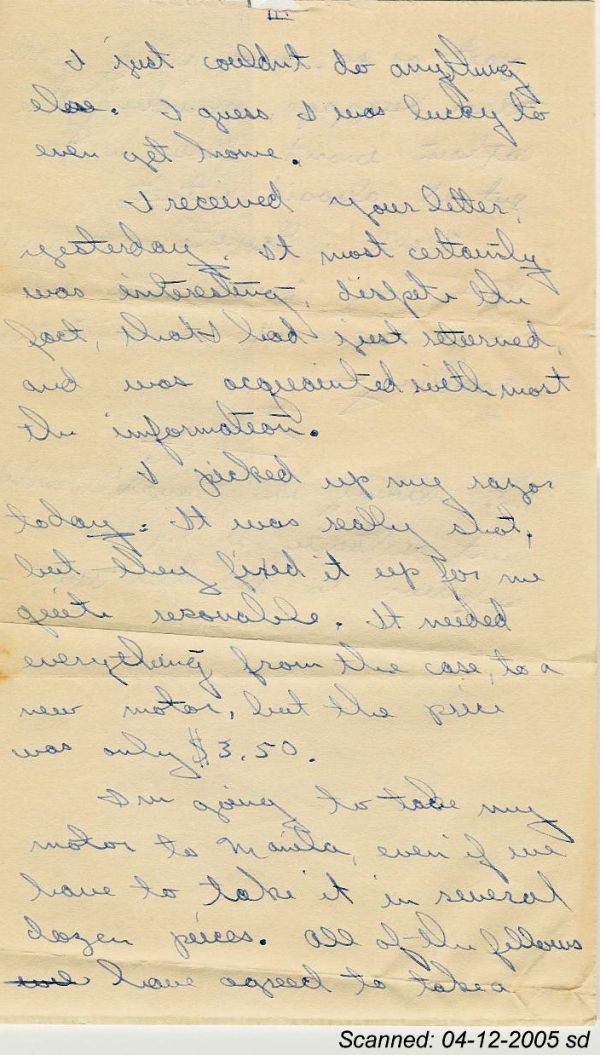 II.
I just couldn't do anything
else. I guess I was lucky to
even get home.
I received your letter,
yesterday. It most certainly
was interesting, dispite the
fact, that I had just returned,
and was acquainted with most
the information.
I picked up my razor
today. It was really shot,
but they fixed it up for me
quite resonable. It needed
everything from the case, to a
new motor, but the price
was only $3.50.
I'm going to take my
motor to Manila, even if we
have to take it in several
dozen peices. All of the fellows
have agreed to take a
Scanned: 04-12-2005 sd